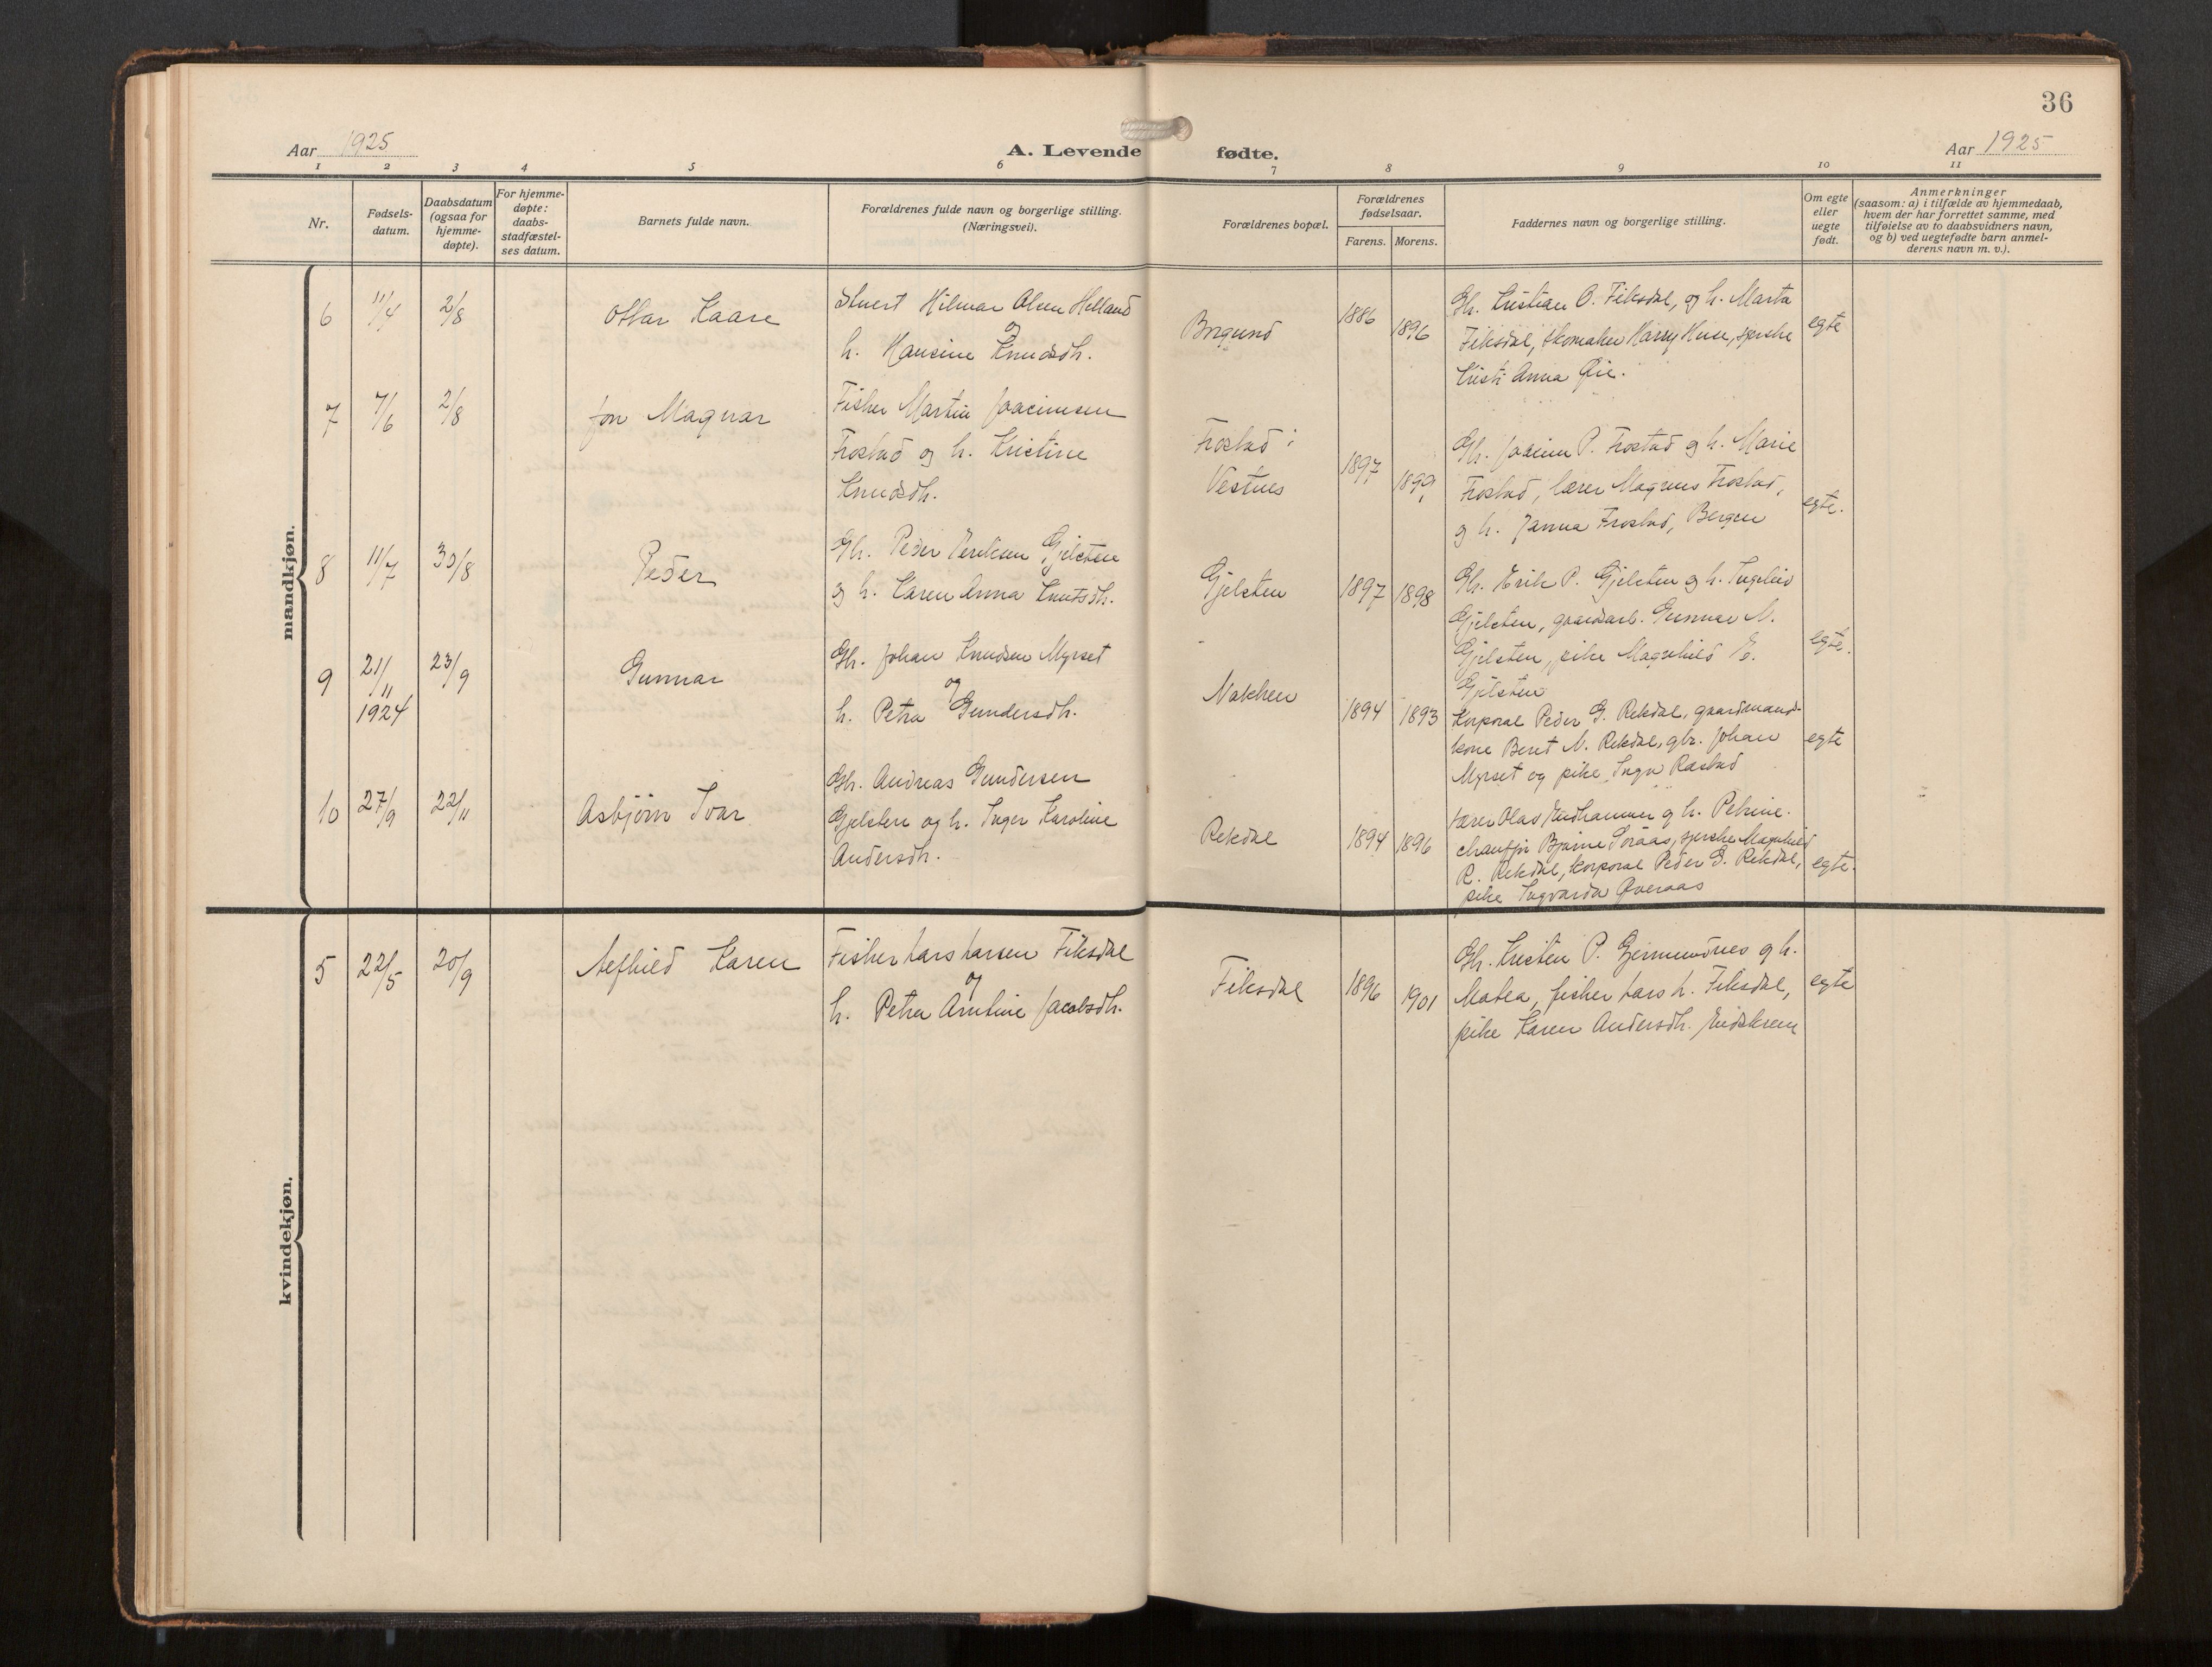 36
Aar 1925
A. Levende fødte.
Aar 1925
1 2 3 4 5 6 7 8 9 10 11
Nr.
Fødsels-
datum.
Daabsdatum
(ogsaa for
hjemme-
døpte).
For hjemme-
døpte:
daabs-
stadfæstel-
ses datum.
Barnets fulde navn.
Forældrenes fulde navn og borgerlige stilling.
(Næringsvei).
Forældrenes bopæl.
Forældrenes
fødselsaar.
Farens. Morens.
Faddernes navn og borgerlige stilling.
Om egte
eller
uegte
født.
Anmerkninger
(saasom: a) i tilfælde av hjemmedaab,
hvem der har forrettet samme, med
tilføielse av to daabsvidners navn,
og b) ved uegtefødte barn anmel-
derens navn m. v.).
mandkjøn.
6 11/4 2/8 Ottar Kaare
Hilmar Olsen Helland
og
h. Hansine Knudsdh.
Borgund 1886 1896
Gbr. Kristian O. Fiksdal, og h. Marta
Fiksdal, skomaker Harry Huse,
Kristi Anna Øie.
egte
7 7/6 2/8 Jon Magnar
Fisker Martin Joacimsen
Frostad og h. Kristine
Knudsdh.
Frostad i
Vestnes
1897 1899
Gbr. Joacim P. Frostad og h. Marie
Frostad, lærer Magnus Frostad,
og h. Janna Frostad, Bergen
egte.
8 11/7 30/8 Peder
Gbr. Peder Eriksen Gjelsten
og h. Karen Anna Knutsdh.
Gjelsten 1897 1898
Gbr. Erik P. Gjelsten og h. Ingeleiv
Gjelsten, gaardarb. Gunnar N.
Gjelsten, pike Magnhild E.
Gjelsten
egte.
9 21/11 1924 23/9 Gunnar
Gbr. Johan Knudsen Myrset
og
h. Petra Gundersdh.
Nakken 1894 1893
Korporal Peder G. Rekdal, gaardmand-
kone Beret N. Rekdal, gbr. Johan
Myrset og pike Inga Rastad
egte
10 27/9 22/11 Asbjørn Ivar
Gbr. Andreas Gundersen
Gjelsten og h. Inger Karoline
Andersdh.
Rekdal 1894 1896
Lærer Olav Endhammer og h. Petrine.
chauffør Bjarne Soraas, Magnhild
R. Rekdal, korporal Peder G. Rekdal,
pike Ingvarda Øveraas
egte.
kvindekjøn.
5 22/5 20/9 Alfhild Karen
Fisker Lars Larsen Fiksdal
og
h. Petra Arntine Jacobsdh.
Fiksdal 1896 1901
Gbr. Kristen P. Gjermundnes og h.
Matea, fisker Lars L. Fiksdal,
pike Karen Andersdh. Eidskrem
egte